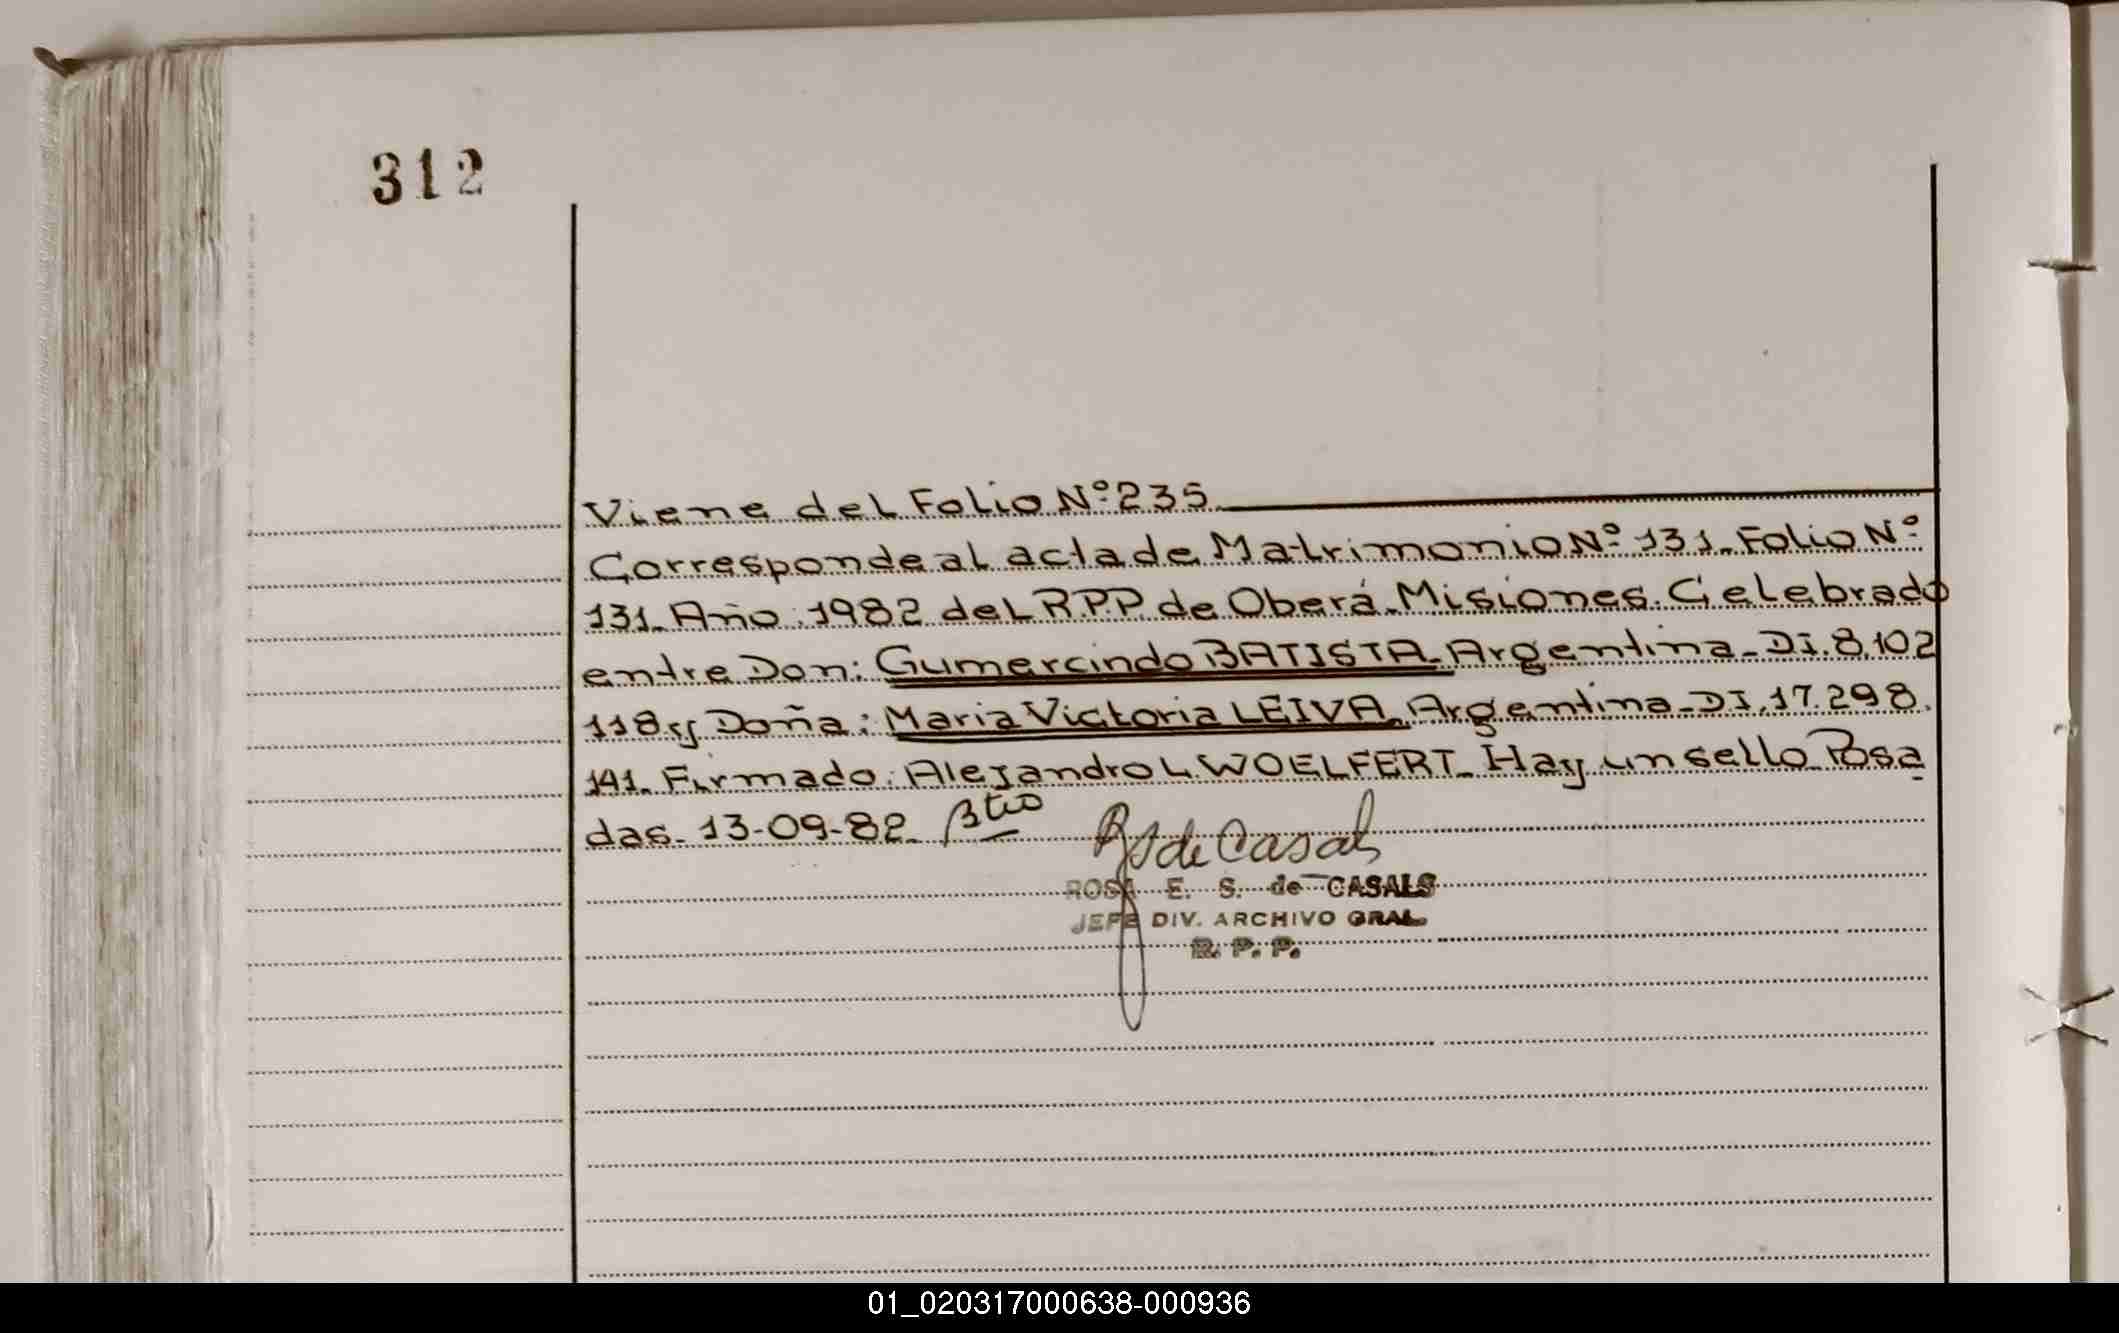 312
Viene del Folio Nº 235
Corresponde al acta de Matrimonio Nº 131. Folio Nº
131. Año: 1982 del R.P.P. de Oberá. Misiones. Celebrado
entre Don: Gumercindo BATISTA. Argentina. DI. 8.102
118 y Doña: Maria Victoria LEIVA. Argentina. DI. 17.298.
141. Firmado: Alejandro L. WOELFERT. Hay un sello Posa
das. 13-09-82.
RS de Casals
ROSA E. S. de CASALS
JEFE DIV. ARCHIVO GRAL.
R. P. P.
01_020317000638-000936